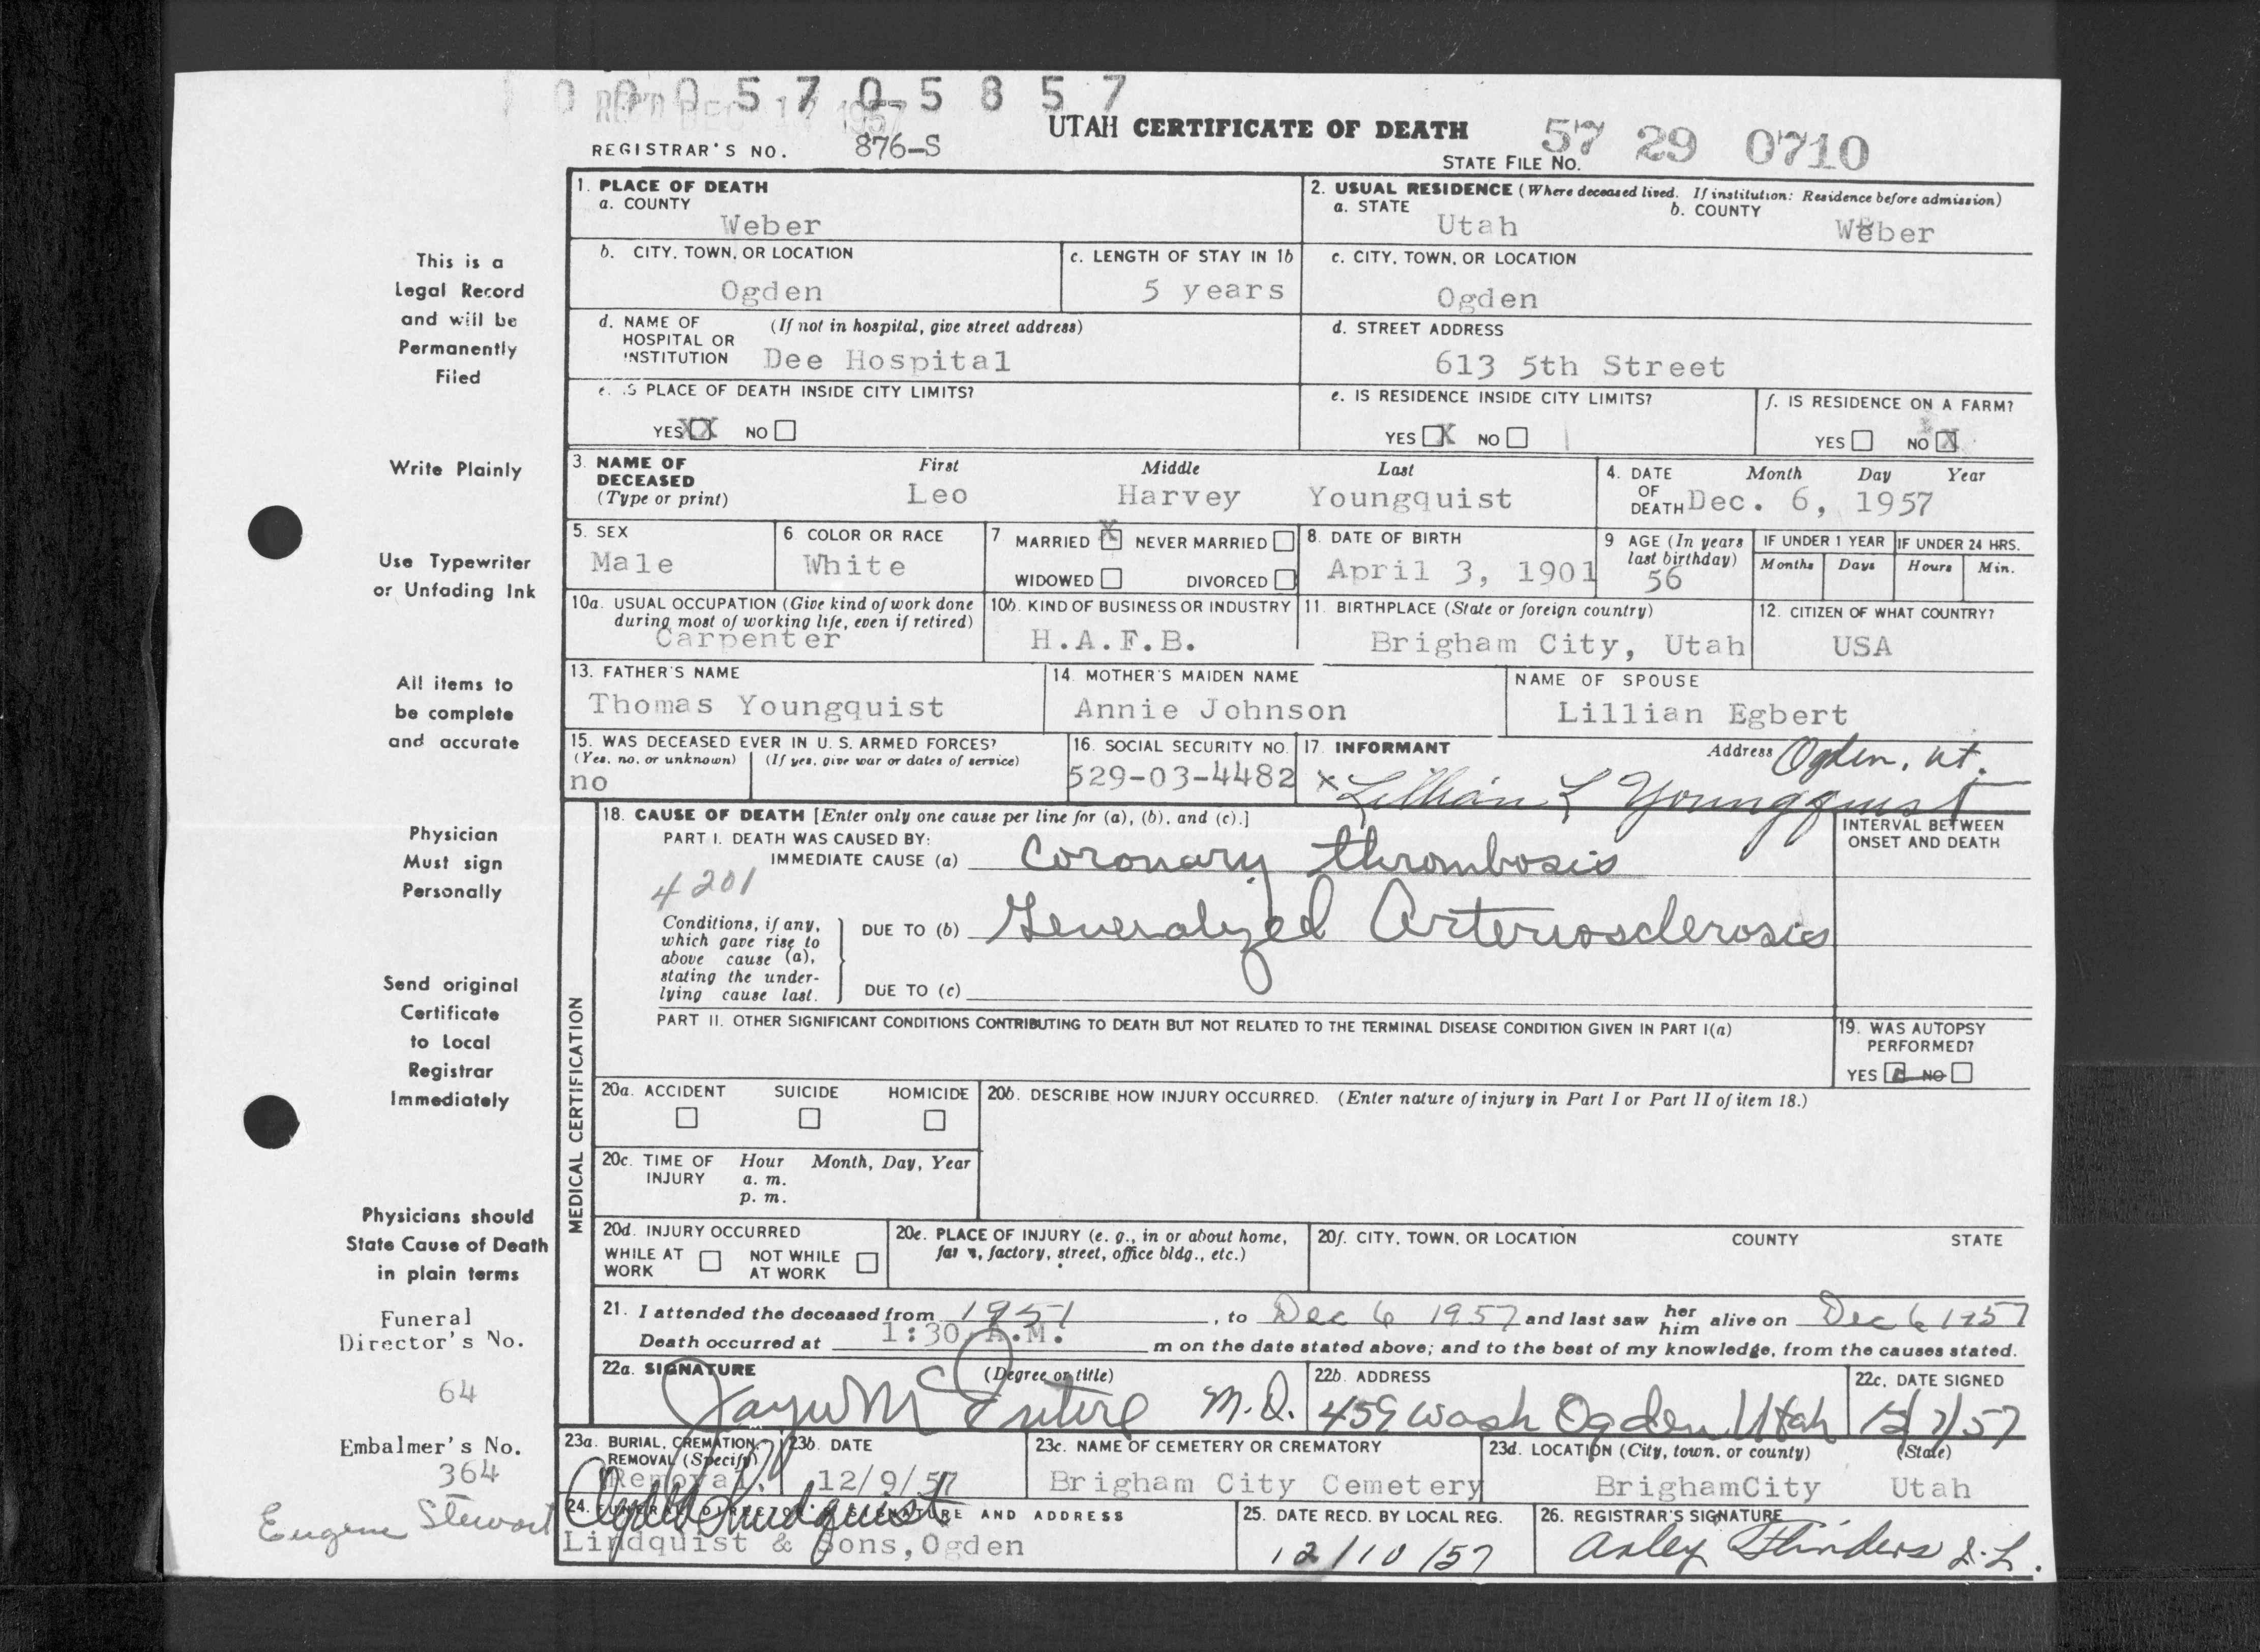 0 0 0 5 7 0 5 8 5 7
REC'D DEC 17 1957
UTAH CERTIFICATE OF DEATH
REGISTRAR'S NO. 876-S
STATE FILE NO. 57 29 0710
1. PLACE OF DEATH
a. COUNTY
Weber
2. USUAL RESIDENCE (Where deceased lived. If institution: Residence before admission)
a. STATE b. COUNTY
Utah Weber
b. CITY, TOWN, OR LOCATION
Ogden
c. LENGTH OF STAY IN 1b
5 years
c. CITY, TOWN, OR LOCATION
Ogden
d. NAME OF HOSPITAL OR INSTITUTION (If not in hospital, give street address)
Dee Hospital
d. STREET ADDRESS
613 5th Street
e. IS PLACE OF DEATH INSIDE CITY LIMITS?
YES XX NO
e. IS RESIDENCE INSIDE CITY LIMITS?
YES X NO
f. IS RESIDENCE ON A FARM?
YES NO X
3. NAME OF DECEASED (Type or print)
First Middle Last
Leo Harvey Youngquist
4. DATE OF DEATH Month Day Year
Dec. 6, 1957
5. SEX
Male
6 COLOR OR RACE
White
7 MARRIED X NEVER MARRIED
WIDOWED DIVORCED
8. DATE OF BIRTH
April 3, 1901
9 AGE (In years last birthday)
56
IF UNDER 1 YEAR IF UNDER 24 HRS.
Months Days Hours Min.
10a. USUAL OCCUPATION (Give kind of work done during most of working life, even if retired)
Carpenter
10b. KIND OF BUSINESS OR INDUSTRY
H.A.F.B.
11. BIRTHPLACE (State or foreign country)
Brigham City, Utah
12. CITIZEN OF WHAT COUNTRY?
USA
13. FATHER'S NAME
Thomas Youngquist
14. MOTHER'S MAIDEN NAME
Annie Johnson
NAME OF SPOUSE
Lillian Egbert
15. WAS DECEASED EVER IN U. S. ARMED FORCES?
(Yes, no, or unknown) (If yes, give war or dates of service)
no
16. SOCIAL SECURITY NO.
529-03-4482
17. INFORMANT Address Ogden, Ut.
x Lillian L Youngquist
18. CAUSE OF DEATH [Enter only one cause per line for (a), (b), and (c).]
PART I. DEATH WAS CAUSED BY:
IMMEDIATE CAUSE (a) Coronary thrombosis
INTERVAL BETWEEN ONSET AND DEATH
4201
Conditions, if any, which gave rise to above cause (a), stating the underlying cause last.
DUE TO (b) Generalized Arteriosclerosis
DUE TO (c)
PART II. OTHER SIGNIFICANT CONDITIONS CONTRIBUTING TO DEATH BUT NOT RELATED TO THE TERMINAL DISEASE CONDITION GIVEN IN PART I(a)
19. WAS AUTOPSY PERFORMED?
YES NO
MEDICAL CERTIFICATION
20a. ACCIDENT SUICIDE HOMICIDE
20b. DESCRIBE HOW INJURY OCCURRED. (Enter nature of injury in Part I or Part II of item 18.)
20c. TIME OF INJURY Hour Month, Day, Year
a. m.
p. m.
20d. INJURY OCCURRED
WHILE AT WORK NOT WHILE AT WORK
20e. PLACE OF INJURY (e. g., in or about home, farm, factory, street, office bldg., etc.)
20f. CITY, TOWN, OR LOCATION COUNTY STATE
21. I attended the deceased from 1951, to Dec 6 1957 and last saw her him alive on Dec 6 1957
Death occurred at 1:30 A.M. m on the date stated above; and to the best of my knowledge, from the causes stated.
22a. SIGNATURE (Degree or title)
M.D.
22b. ADDRESS
459 Wash Ogden Utah
22c. DATE SIGNED
12/7/57
23a. BURIAL, CREMATION, REMOVAL (Specify)
Removal.
23b. DATE
12/9/57
23c. NAME OF CEMETERY OR CREMATORY
Brigham City Cemetery
23d. LOCATION (City, town, or county) (State)
BrighamCity Utah
24. FUNERAL DIRECTOR'S SIGNATURE AND ADDRESS
Lindquist & Sons, Ogden
25. DATE RECD. BY LOCAL REG.
12/10/57
26. REGISTRAR'S SIGNATURE
Flinders
This is a
Legal Record
and will be
Permanently
Filed
Write Plainly
Use Typewriter
or Unfading Ink
All items to
be complete
and accurate
Physician
Must sign
Personally
Send original
Certificate
to Local
Registrar
Immediately
Physicians should
State Cause of Death
in plain terms
Funeral
Director's No.
64
Embalmer's No.
364
Eugene Stewart